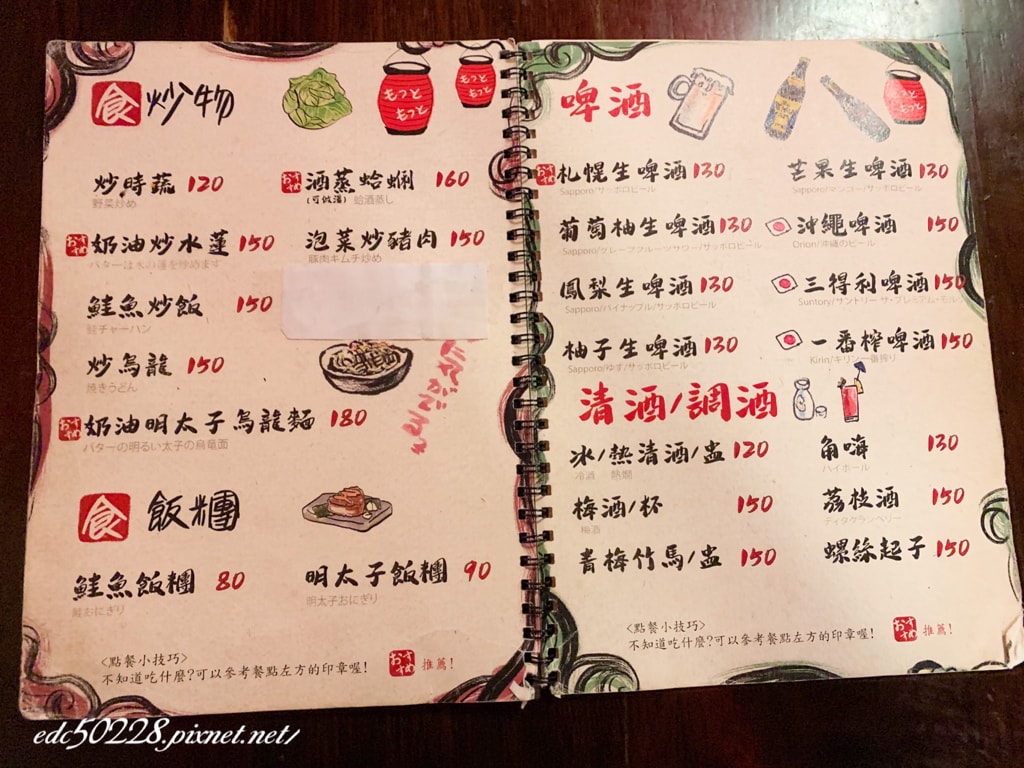 食 炒物
もっと
もっと
もっと
もっと
炒時蔬 120
野菜炒め
おすすめ 酒蒸蛤蜊 160
(可做湯) 蛤酒蒸し
おすすめ 奶油炒水蓮 150
バターは水の蓮を炒めます
泡菜炒豬肉 150
豚肉キムチ炒め
鮭魚炒飯 150
鮭チャーハン
炒烏龍 150
焼きうどん
おすすめ 奶油明太子烏龍麵 180
バターの明るい太子の烏竜面
食 飯糰
鮭魚飯糰 80
鮭おにぎり
明太子飯糰 90
明太子おにぎり
<點餐小技巧>
不知道吃什麼?可以參考餐點左方的印章喔! おすすめ 推薦!
啤酒
もっと
もっと
おすすめ 札幌生啤酒 130
Sapporo/サッポロビール
芒果生啤酒 130
Sapporo/マンゴー/サッポロビール
葡萄柚生啤酒 130
Sapporo/グレープフルーツサワー/サッポロビール
沖繩啤酒 150
Orion/沖縄のビール
鳳梨生啤酒 130
Sapporo/パイナップル/サッポロビール
三得利啤酒 150
Suntory/サントリー ザ・プレミアム・モルツ
柚子生啤酒 130
Sapporo/ゆず/サッポロビール
一番榨啤酒 150
Kirin/キリン一番搾り
清酒/調酒
冰/熱清酒/盅 120
冷酒 熱燗
角嗨 130
ハイボール
梅酒/杯 150
梅酒
荔枝酒 150
ディタクランベリー
青梅竹馬/盅 150
螺絲起子 150
<點餐小技巧>
不知道吃什麼?可以參考餐點左方的印章喔! おすすめ 推薦!
edc50228.pixnet.net/